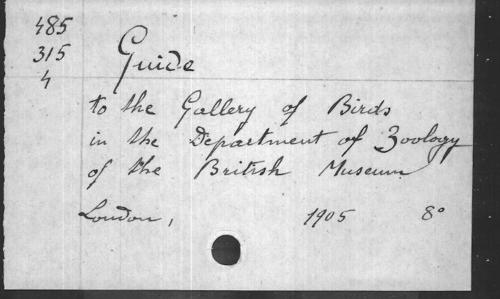 485
315
4
Guide
to the Gallery of Birds
in the Department of Zoology
of the British Museum
London, 1905 8°